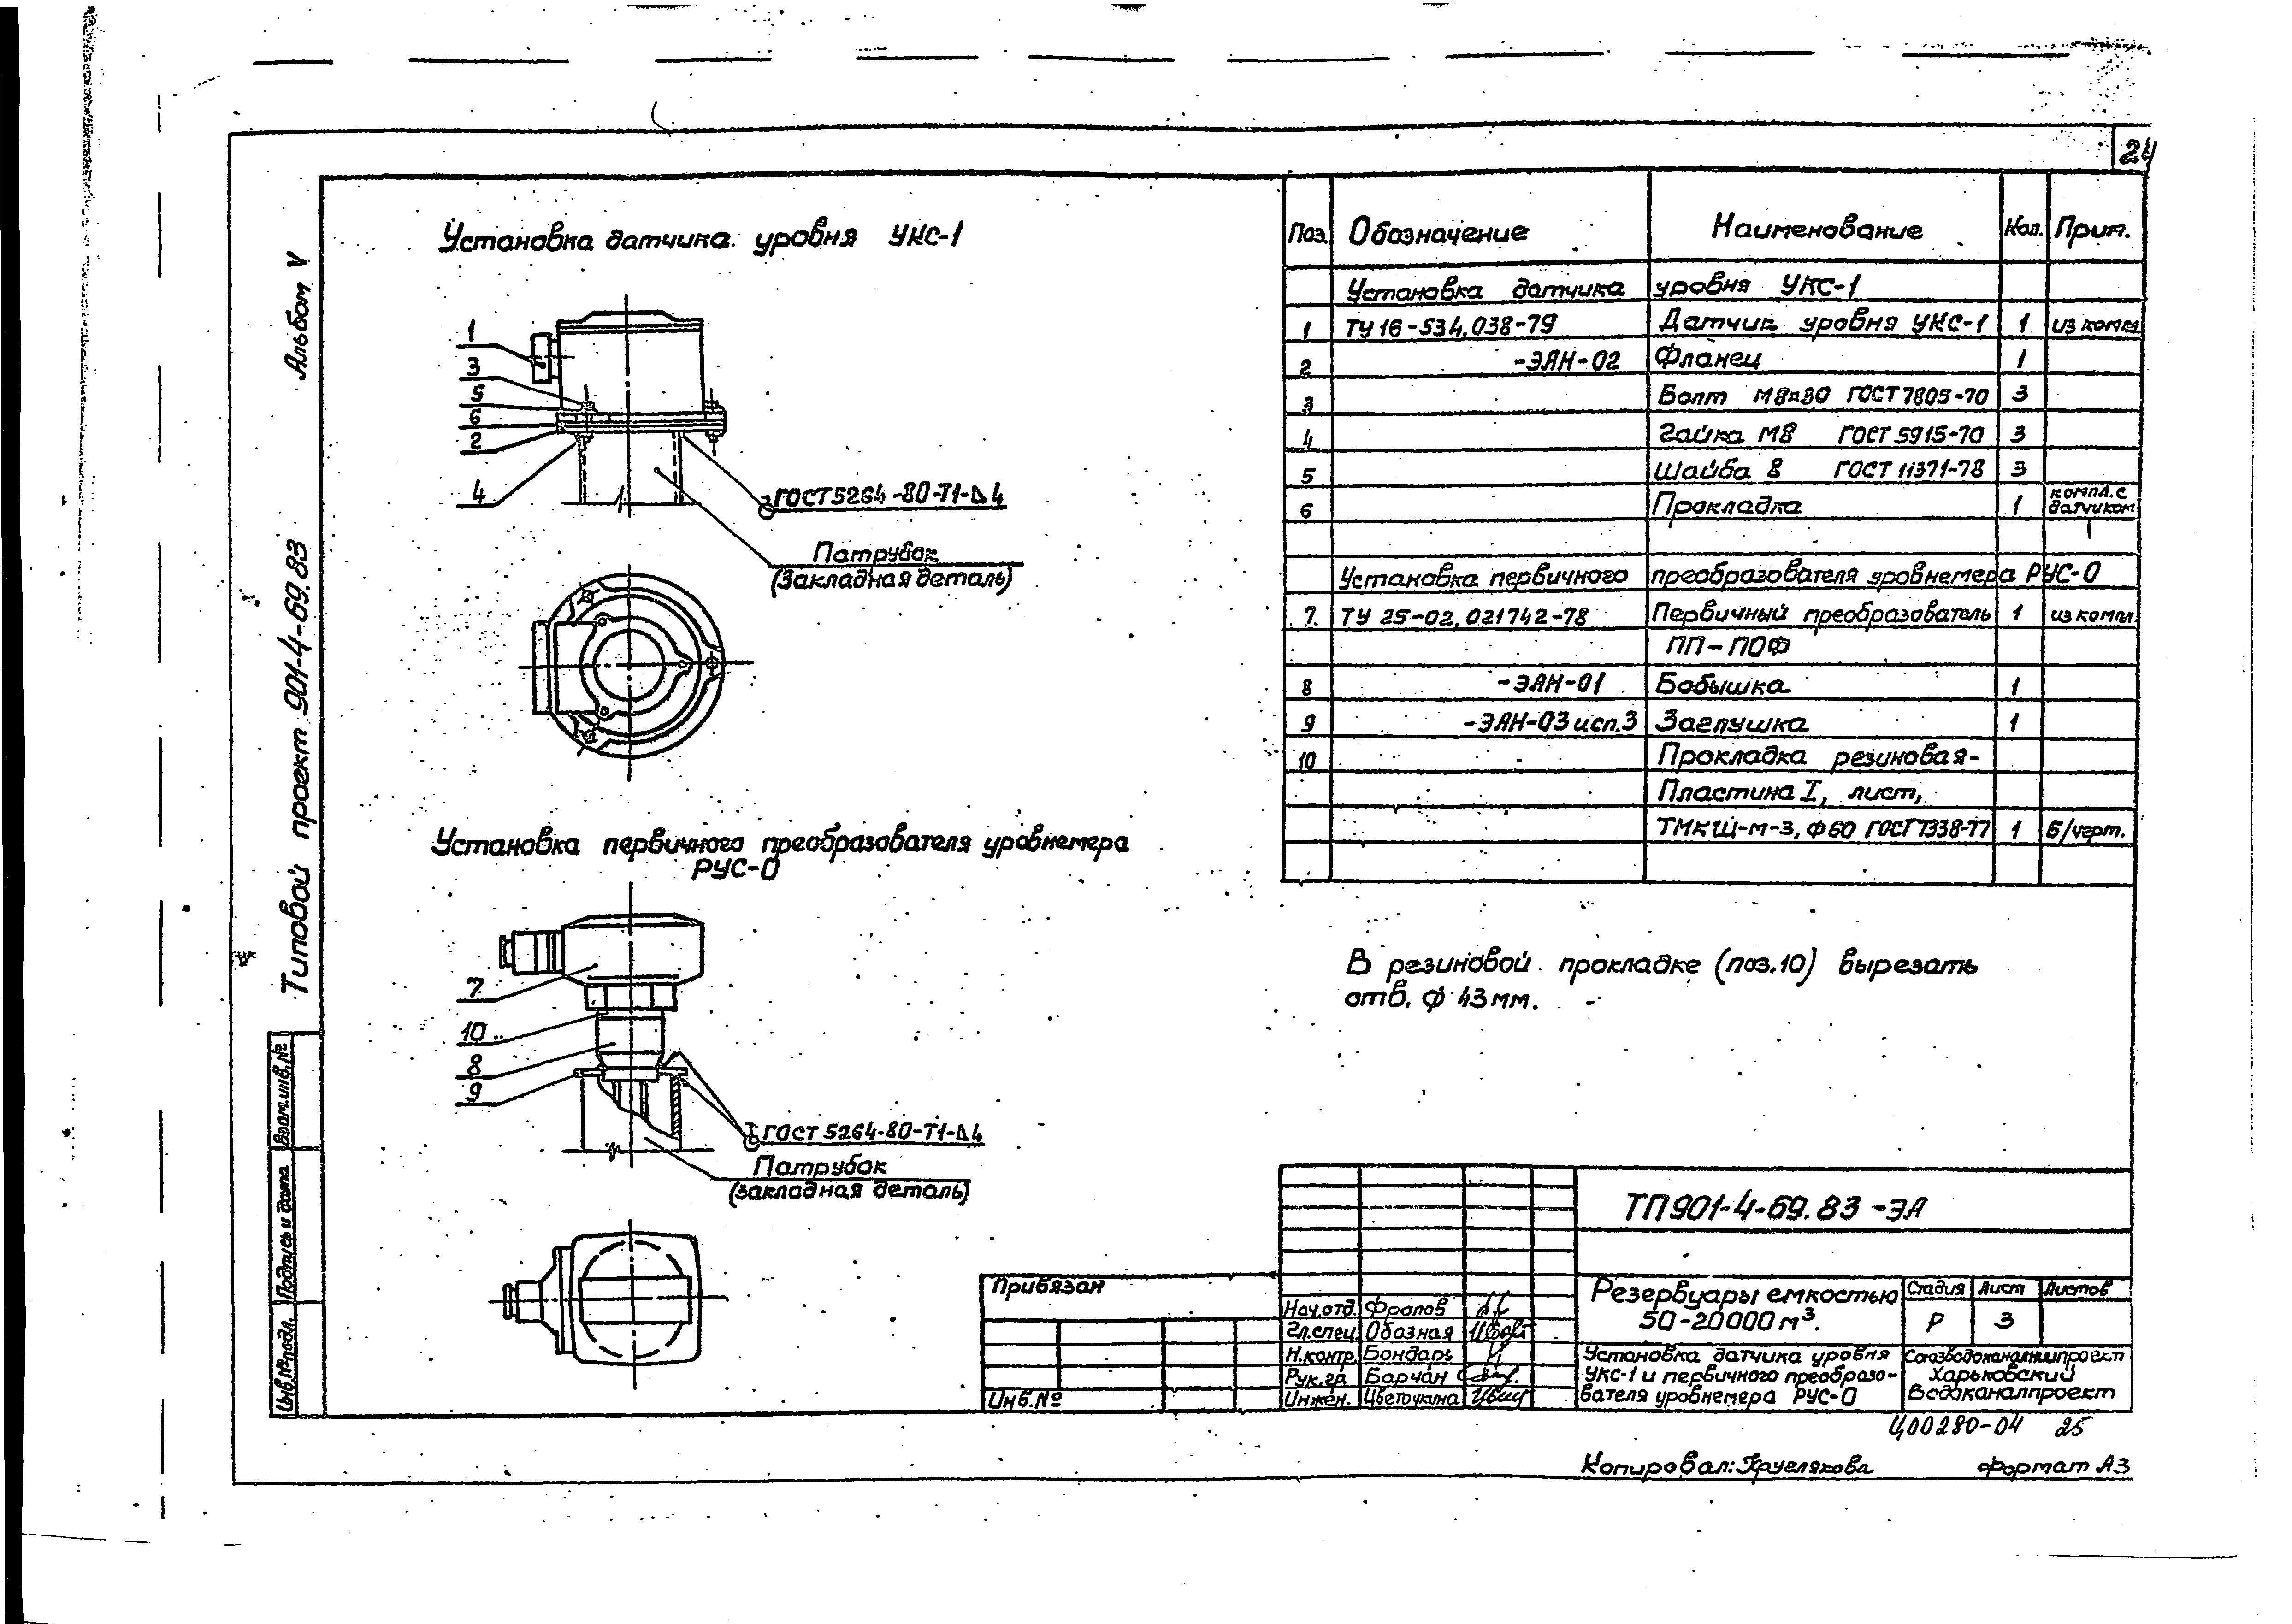 24
Альбом V
Типовой проект 901-4-69.83
Взам.инв.№
Подпись и дата
Инв.№подл.
Установка датчика уровня УКС-1
1
3
5
6
2
4
ГОСТ 5264-80-Т1-Δ4
Патрубок
(Закладная деталь)
Установка первичного преобразователя уровнемера
РУС-0
7
10
8
9
ГОСТ 5264-80-Т1-Δ4
Патрубок
(закладная деталь)
Поз. Обозначение Наименование Кол. Прим.
Установка датчика уровня УКС-1
1 ТУ 16-534.038-79 Датчик уровня УКС-1 1 из компл
2 -ЭАН-02 Фланец 1
3 Болт М8×30 ГОСТ 7805-70 3
4 Гайка М8 ГОСТ 5915-70 3
5 Шайба 8 ГОСТ 11371-78 3
6 Прокладка 1 компл. с
датчиком
Установка первичного преобразователя уровнемера РУС-0
7 ТУ 25-02.021742-78 Первичный преобразователь 1 из компл
ПП-ПОФ
8 -ЭАН-01 Бобышка 1
9 -ЭАН-03 исп.3 Заглушка 1
10 Прокладка резиновая-
Пластина I, лист,
ТМКЩ-м-3, Ф60 ГОСТ 7338-77 1 Б/черт.
В резиновой прокладке (поз.10) вырезать
отв. ф 43 мм.
ТП901-4-69.83 -ЭА
Привязан
Инв.№
Нач.отд. Фролов
Гл.спец. Обозная
Н.контр. Бондарь
Рук.гр. Барчан
Инжен. Цветочкина
Резервуары емкостью
50-20000 м³.
Стадия Лист Листов
Р 3
Установка датчика уровня
УКС-1 и первичного преобразо-
вателя уровнемера РУС-0
Союзводоканалниипроект
Харьковский
Водоканалпроект
Ц00280-04 25
Копировал: Круглякова Формат А3